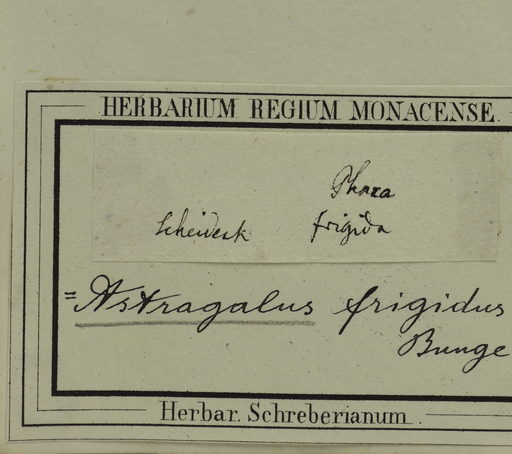 HERBARIUM REGIUM MONACENSE.
Phaca
Scheideck frigida
= Astragalus frigidus
Bunge
Herbar. Schreberianum